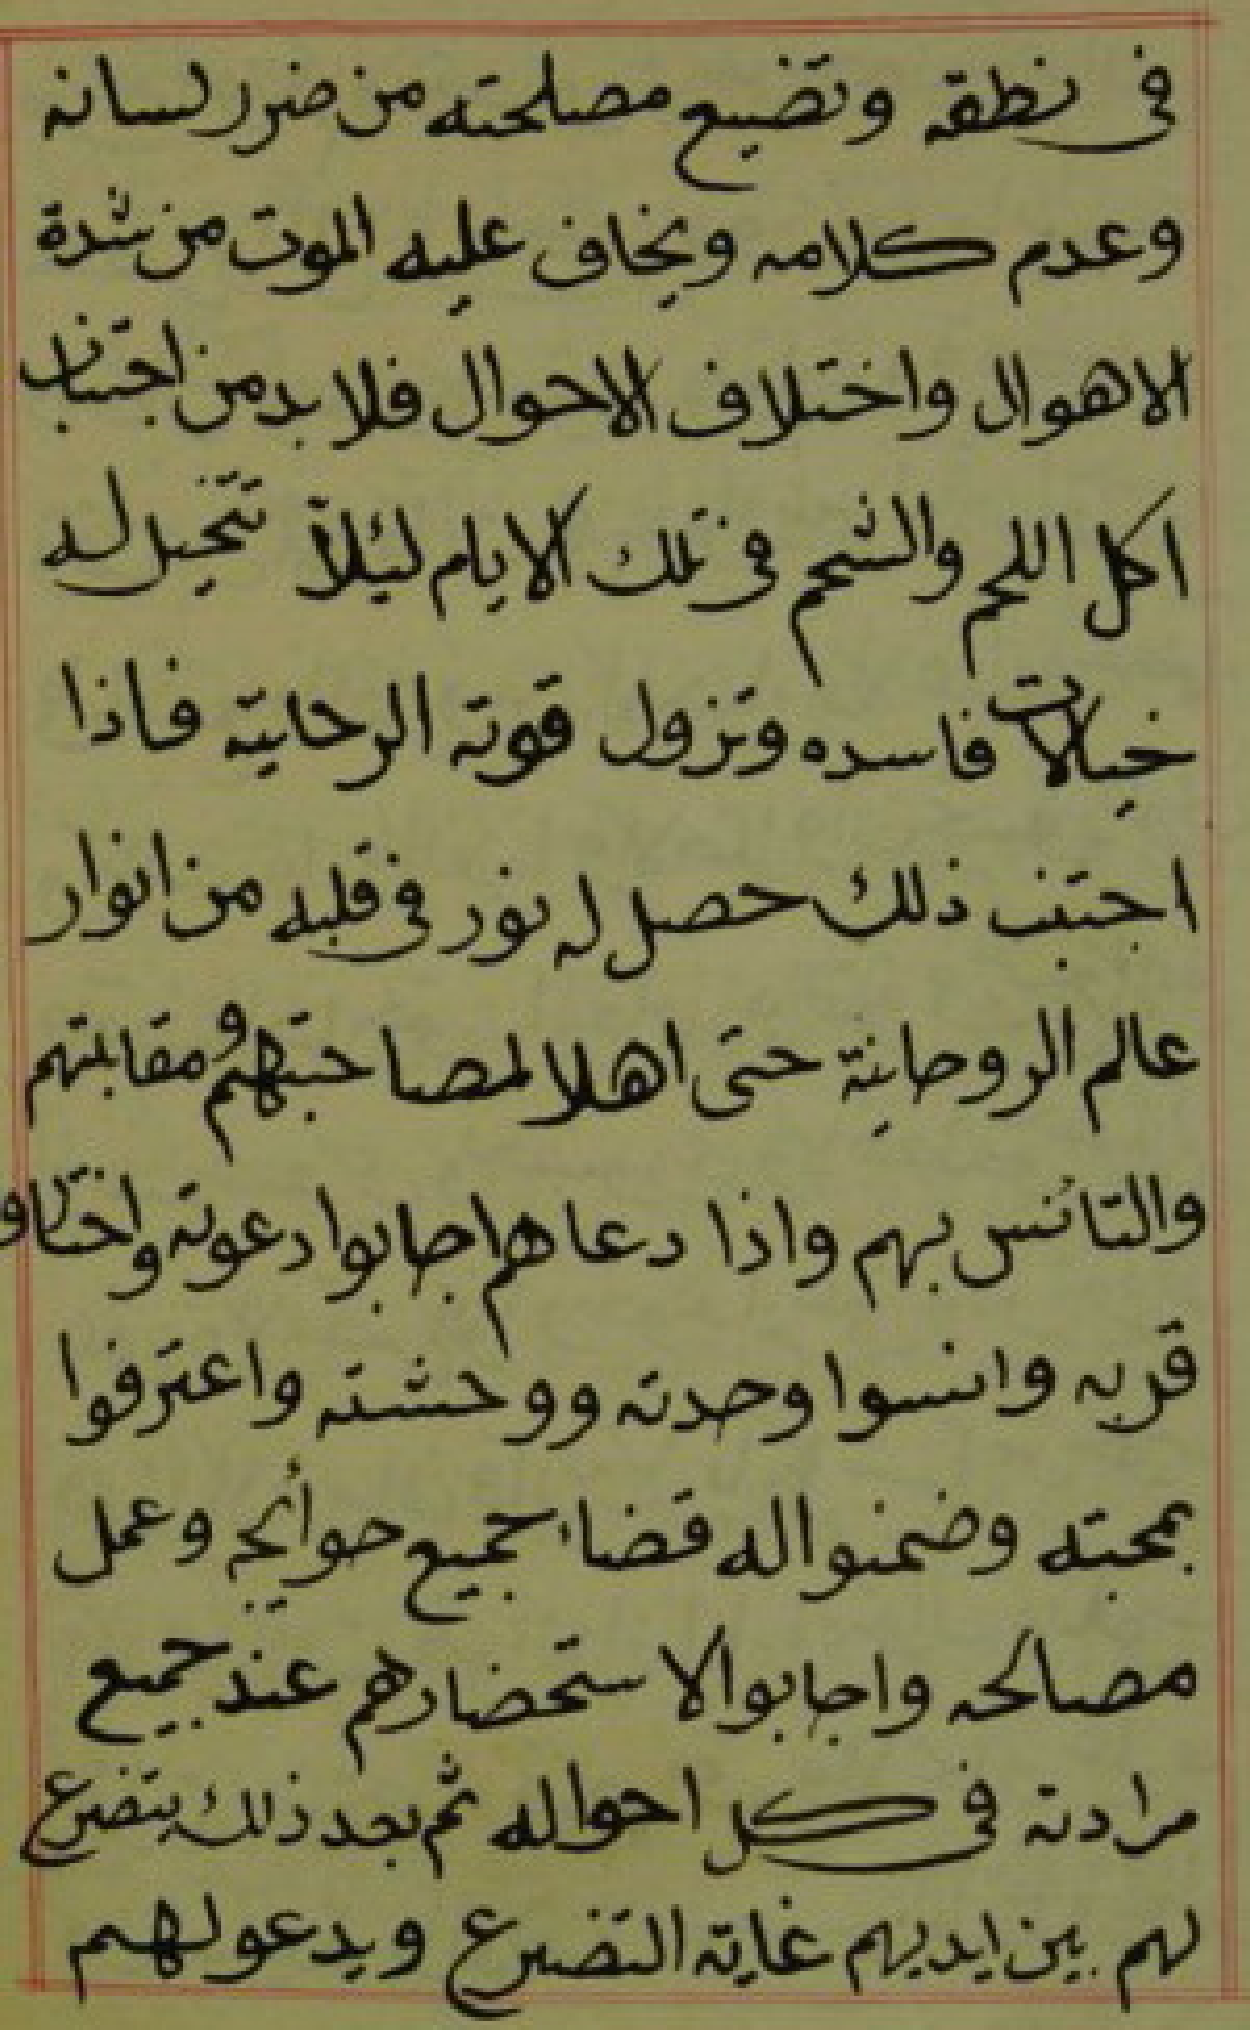 فى نطقه وتضيع مصلحته من ضرر لسانه
وعدم كلامه ويخاف عليه الموت من شدة
الاهوال واختلاف الاحوال فلا بد من اجتناب
اكل اللحم والشحم فى تلك الايام ليئلا تتخيل له
خيالات فاسده وتزول قوته الرحانيته فاذا
اجتنب ذلك حصل له نور فى قلبه من انوار
عالم الروحانية حتى اهلا لمصاحبتهم ومقابلتهم
والتأنس بهم واذا دعاهم اجابوا دعوته واختاروا
قربه وانسوا وحدته ووحشته واعترفوا
بمحبته وضمنوا له قضاء جميع حوائجه وعمل
مصالحه واجابوا لاستحضارهم عند جميع
مرادته فى كل احواله ثم بعد ذلك يتضرع
لهم بين ايديهم غاية التضرع ويدعو لهم